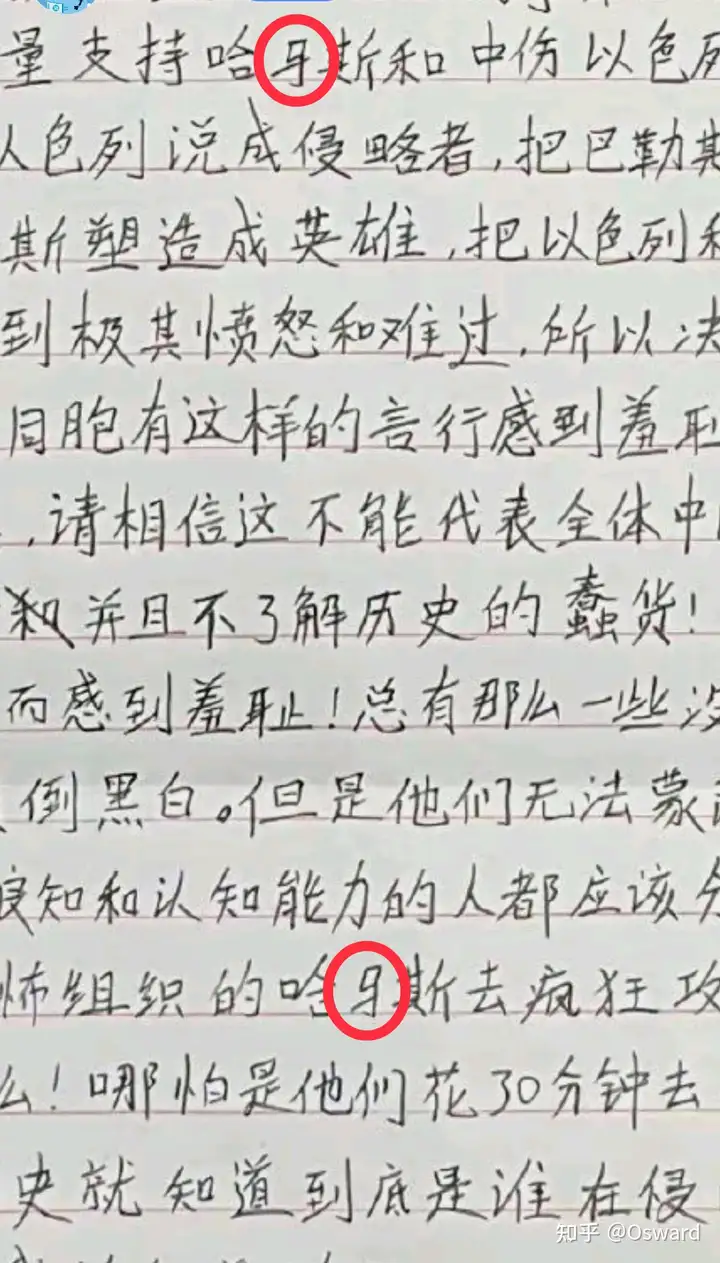 量支持哈牙斯和中伤以色列
人色列说成侵略者,把巴勒斯
斯塑造成英雄,把以色列和
到极其愤怒和难过,所以决
同胞有这样的言行感到羞耻
,请相信这不能代表全体中
并且不了解历史的蠢货!
而感到羞耻!总有那么一些没
倒黑白。但是他们无法蒙
良知和认知能力的人都应该分
怖组织的哈牙斯去疯狂攻
么!哪怕是他们花30分钟去
史就知道到底是谁在侵
知乎 @Osward